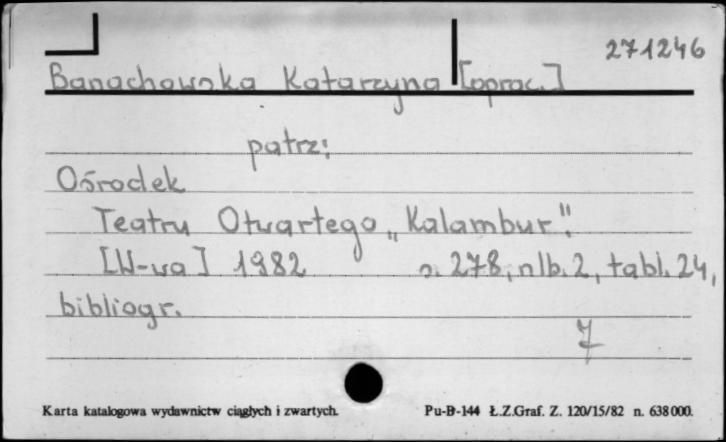 271246
Banachowska Katarzyna [oprac.]
patrz:
Ośrodek
Teatru Otwartego „Kalambur".
[W-wa] 1982 s. 278, nlb. 2, tabl. 24,
bibliogr.
7
Karta katalogowa wydawnictw ciągłych i zwartych. Pu-B-144 Ł.Z.Graf. Z. 120/15/82 n. 638000.